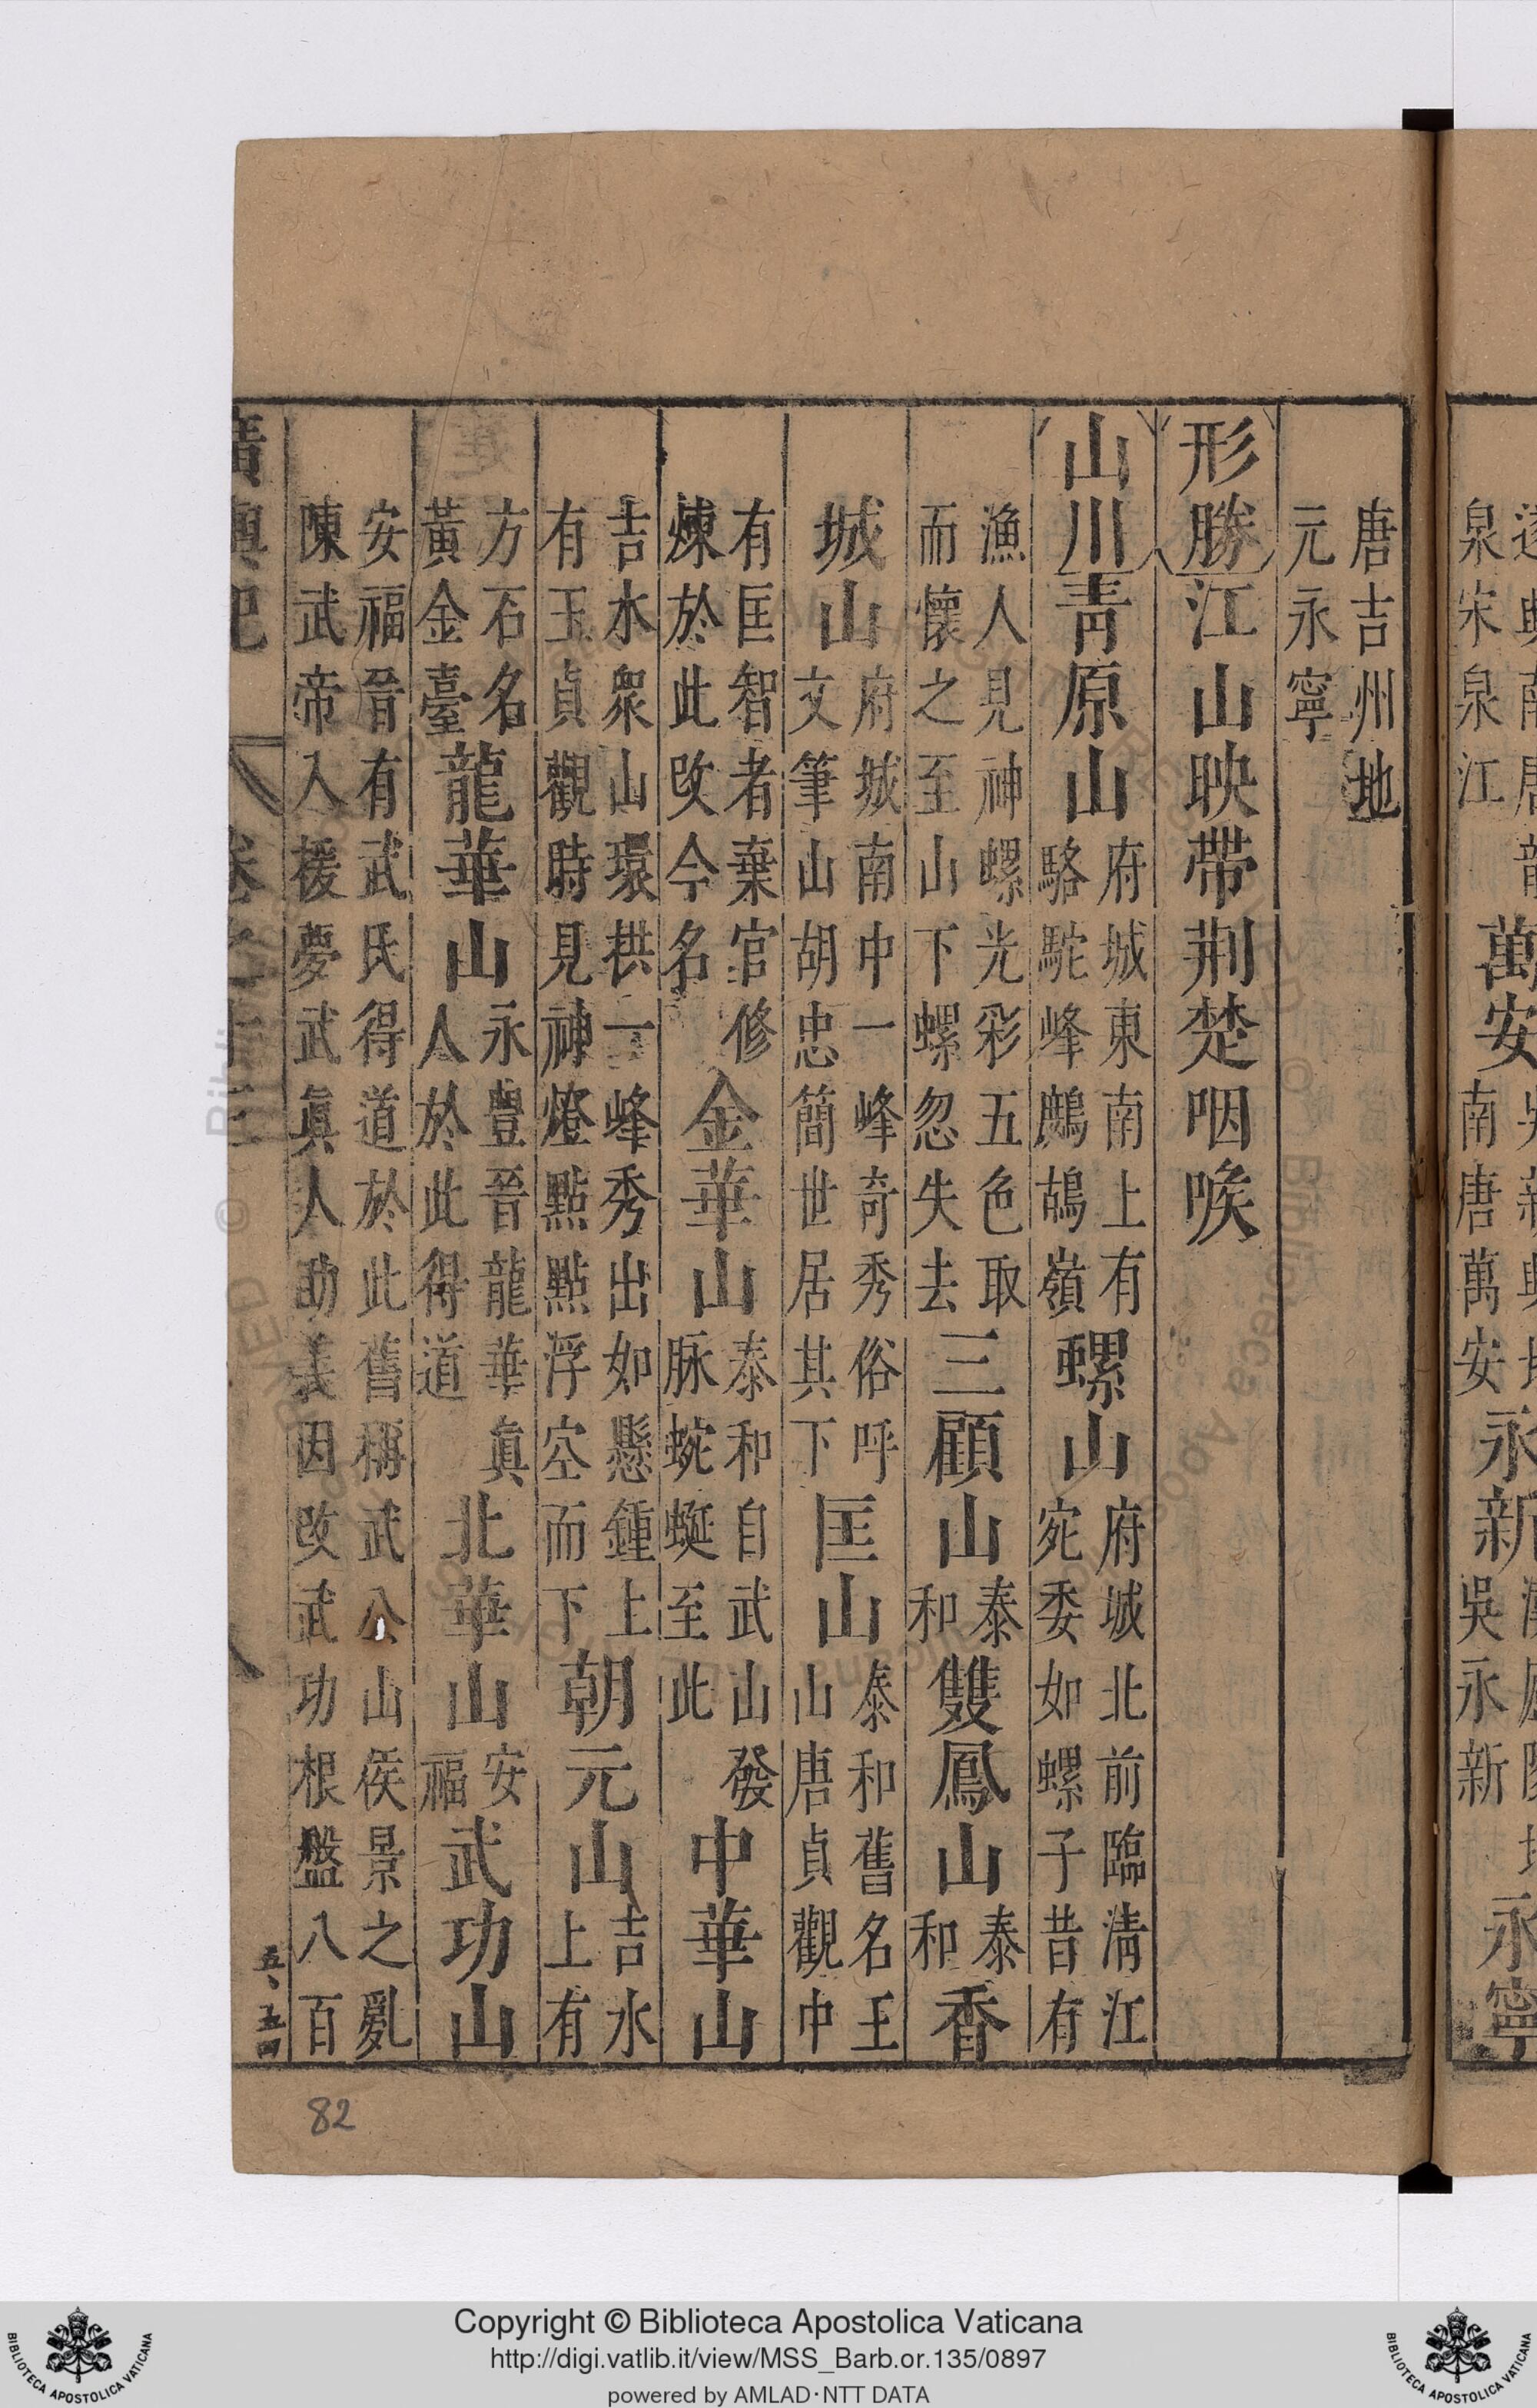 唐吉州地
元永寧
形勝江山映帶荆楚咽喉
山川青原山府城東南上有
駱駝峰鷓鴣嶺螺山府城北前臨淸江
宛委如螺子昔有
漁人見神螺光彩五色取
而懷之至山下螺忽失去三顧山泰和雙鳳山泰和香
城山府城南中一峰奇秀俗呼
文筆山胡忠簡世居其下匡山泰和舊名王
山唐貞觀中
有匡智者棄官修
煉於此改今名金華山泰和自武山發
脉蜿蜒至此中華山
吉水衆山環拱一峰秀出如懸鍾上
有玉貞觀時見神燈點點浮空而下朝元山吉水
上有
方石名
黃金臺龍華山永豐晉龍華眞
人於此得道北華山安福武功山
安福晉有武氏得道於此舊稱武公山侯景之亂
陳武帝入援夢武眞人助義因改武功根盤八百
廣輿記 卷之十二
五、五四
82
萬安
永新
吳永新
南唐萬安
泉宋泉江
Copyright © Biblioteca Apostolica Vaticana
http://digi.vatlib.it/view/MSS_Barb.or.135/0897
powered by AMLAD·NTT DATA
BIBLIOTECA APOSTOLICA VATICANA
BIBLIOTECA APOSTOLICA VATICANA